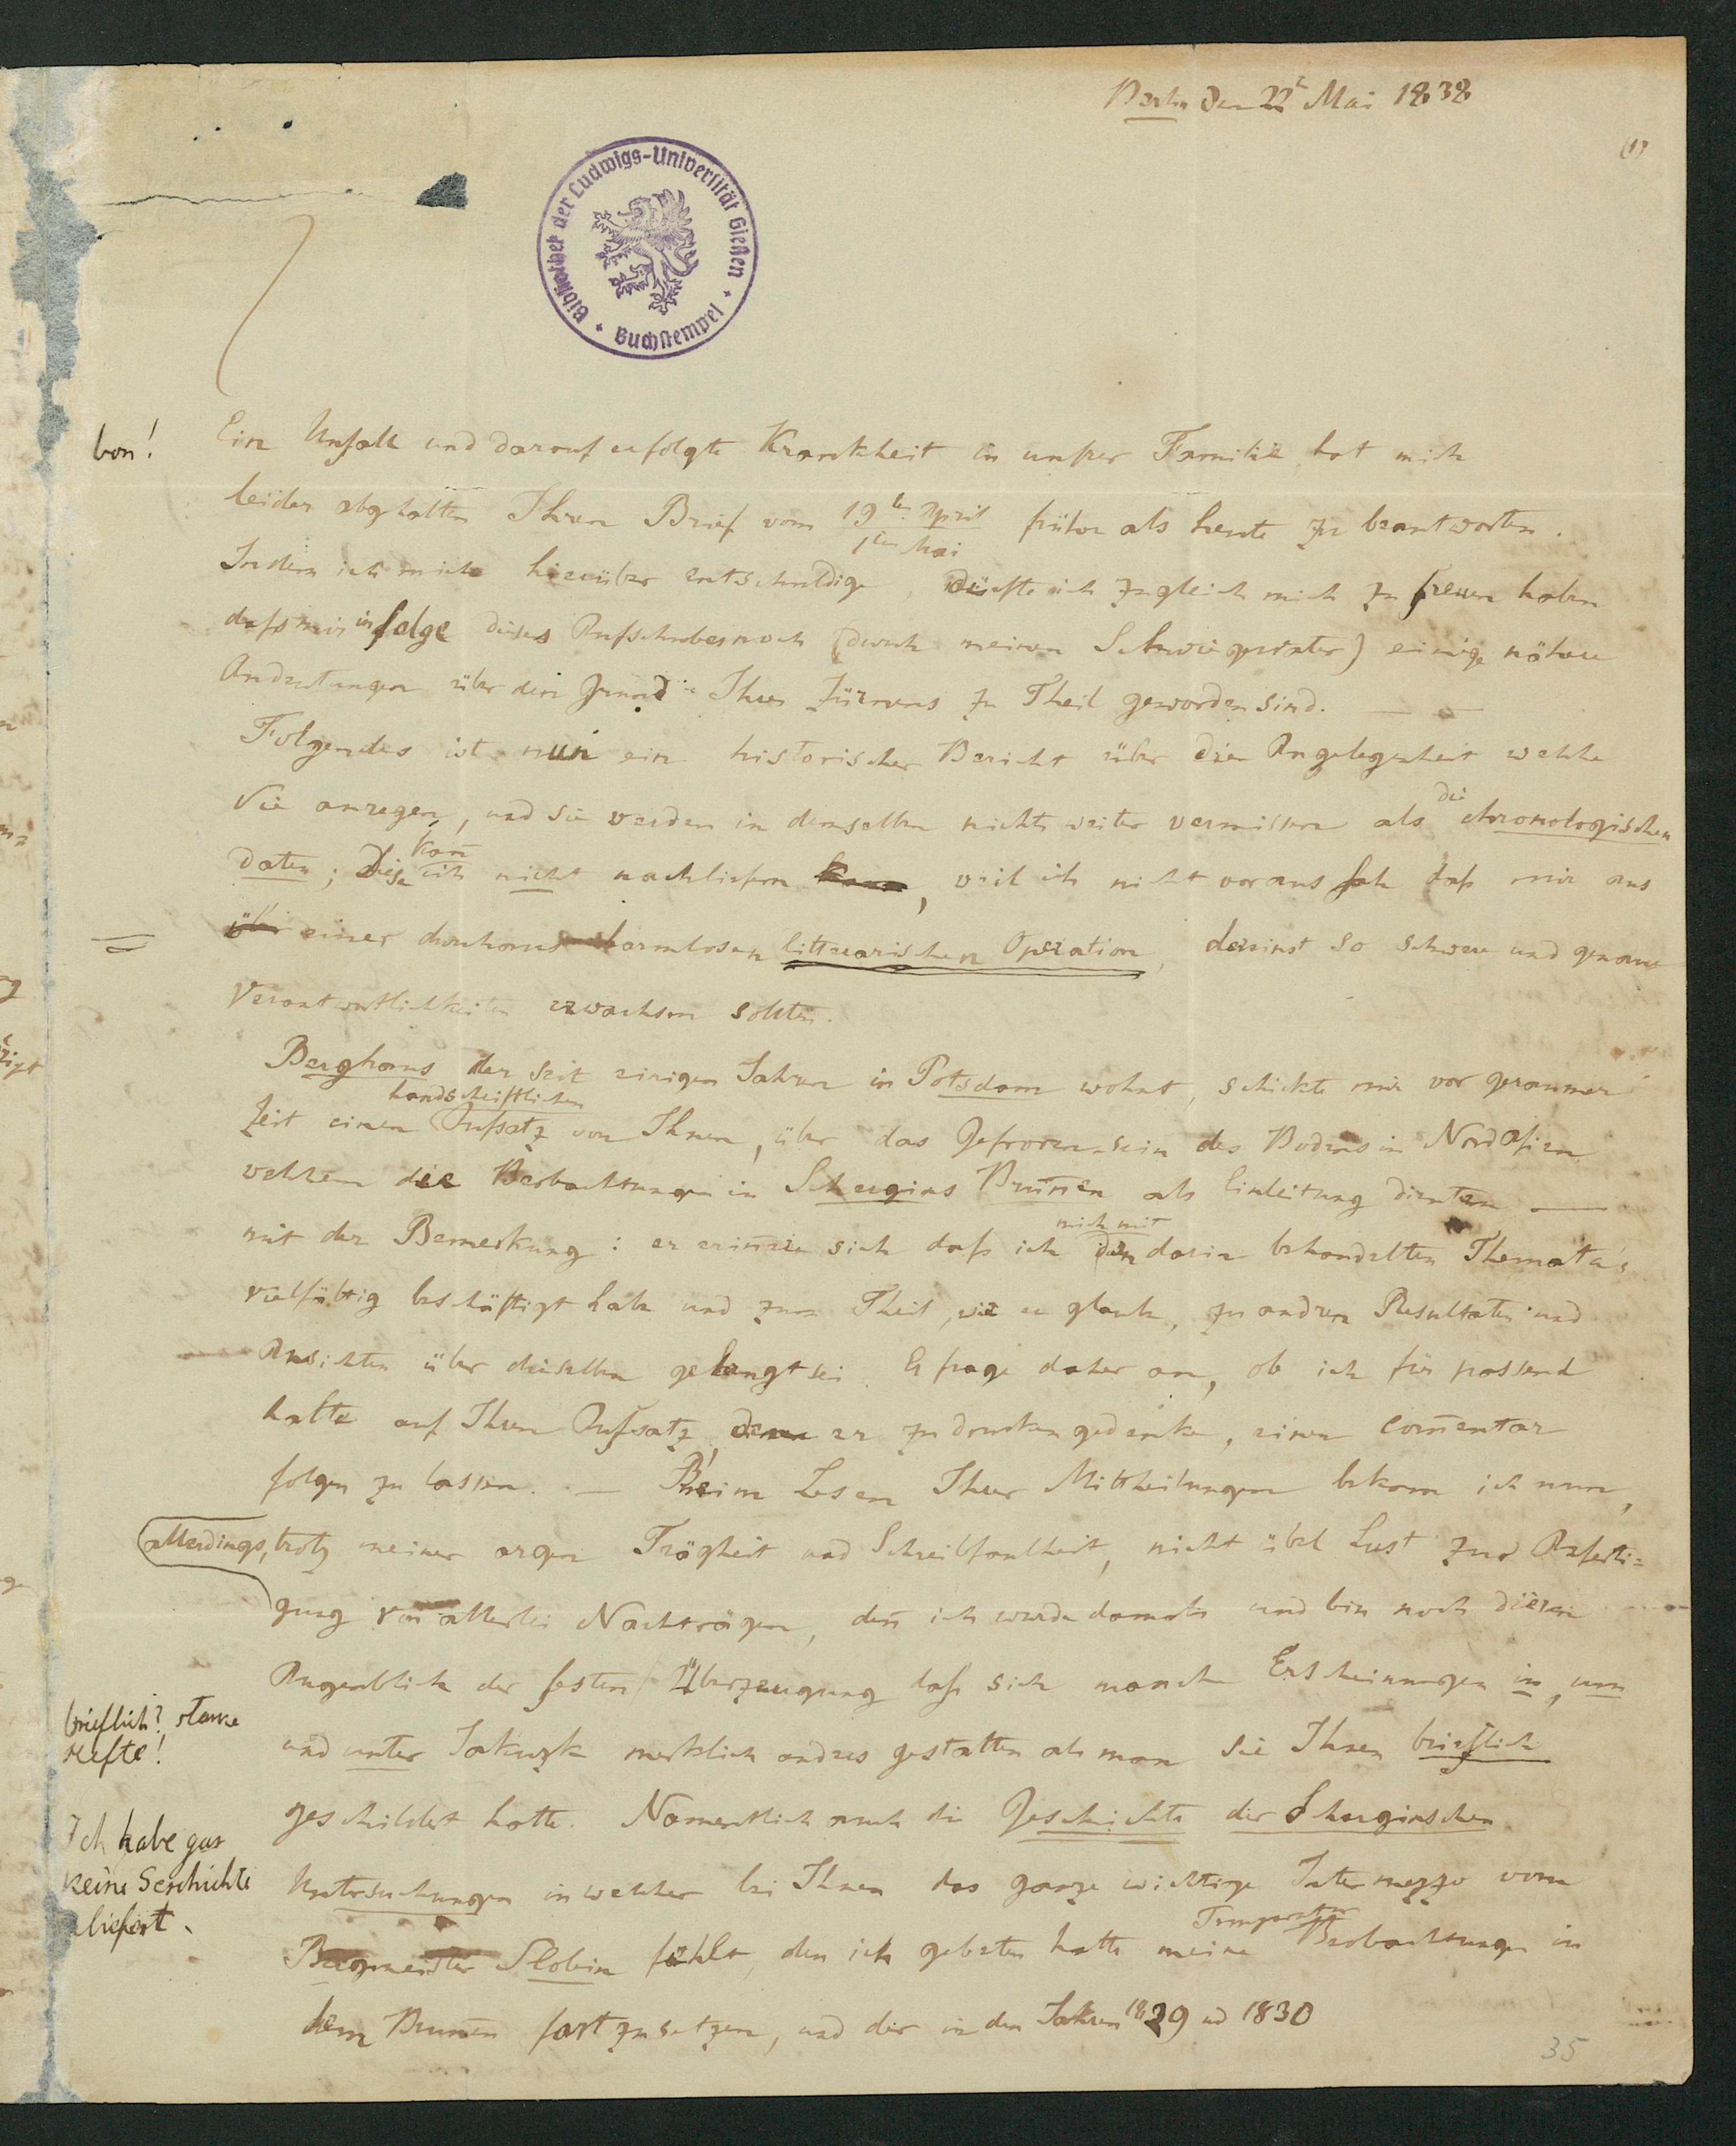 Berlin den 22t Mai 1838
(1)
Bibliothek der Ludwigs-Universität Gießen
Buchstempel
bon!
Ein Unfall und darauf erfolgte Krankheit in unsrer Familie hat mich
leider abgehalten Ihren Brief vom 19ten April / 1ten Mai früher als heute zu beantworten.
Indem ich mich hierüber entschuldige, dürfte ich zugleich mich zu freuen haben
daß mir in folge dieses Aufschubes noch (durch meinen Schwiegervater) einige nähere
Andeutungen über den Grund Ihres Zürnens zu Theil geworden sind. —
Folgendes ist nun ein historischer Bericht über die Angelegenheit welche
Sie anregen, und Sie werden in demselben nichts weiter vermissen als die chronologischen
daten; diese kan̄ ich nicht nachliefern kann, weil ich nicht voraus sah daß mir aus
über einer durchaus harmlosen litterarischen Operation, dereinst so schwere und genaue
Verantwortlichkeiten erwachsen sollten.
Berghaus der seit einigen Jahren in Potsdam wohnt, schickte mir vor geraumer
Zeit einen handschriftlichen Aufsatz von Ihnen, über das Gefrorensein des Bodens in Nordasien
welchem die Beobachtungen in Schergins Brun̄en als Einleitung dienten —
mit der Bemerkung: er erin̄re sich daß ich mich mit den darin behandelten Themata's
vielfältig beschäftigt habe und zum Theil, wie er glaube, zu andren Resultaten und
Ansichten über dieselben gelangt sei. Er frage daher an, ob ich für passend
halte auf Ihren Aufsatz, den er zu drucken gedenke, einen com̄entar
folgen zu lassen. — Beim Lesen Ihrer Mittheilungen bekam ich nun,
allerdings, trotz meiner argen Trägheit und Schreibfaulheit, nicht übel Lust zur Anferti=
gung von allerlei Nachträgen, den̄ ich wurde damals und bin noch diesen
Augenblick der festen Überzeugung daß sich manche Erscheinungen in, um
und unter Jakuzk merklich anders gestalten als man sie Ihnen brieflich
brieflich? starke
Hefte!
geschildert hatte. Namentlich auch die Geschichte der Scherginschen
Ich habe gar
keine Geschichte
geliefert.
Untersuchungen in welcher bei Ihnen das ganze wichtige Intermezzo vom
Bergmeister Slobin fehlt, den ich gebeten hatte meine Temperatur Beobachtungen in
dem Brun̄en fortzusetzen, und der in den Jahren 1829 und 1830
35